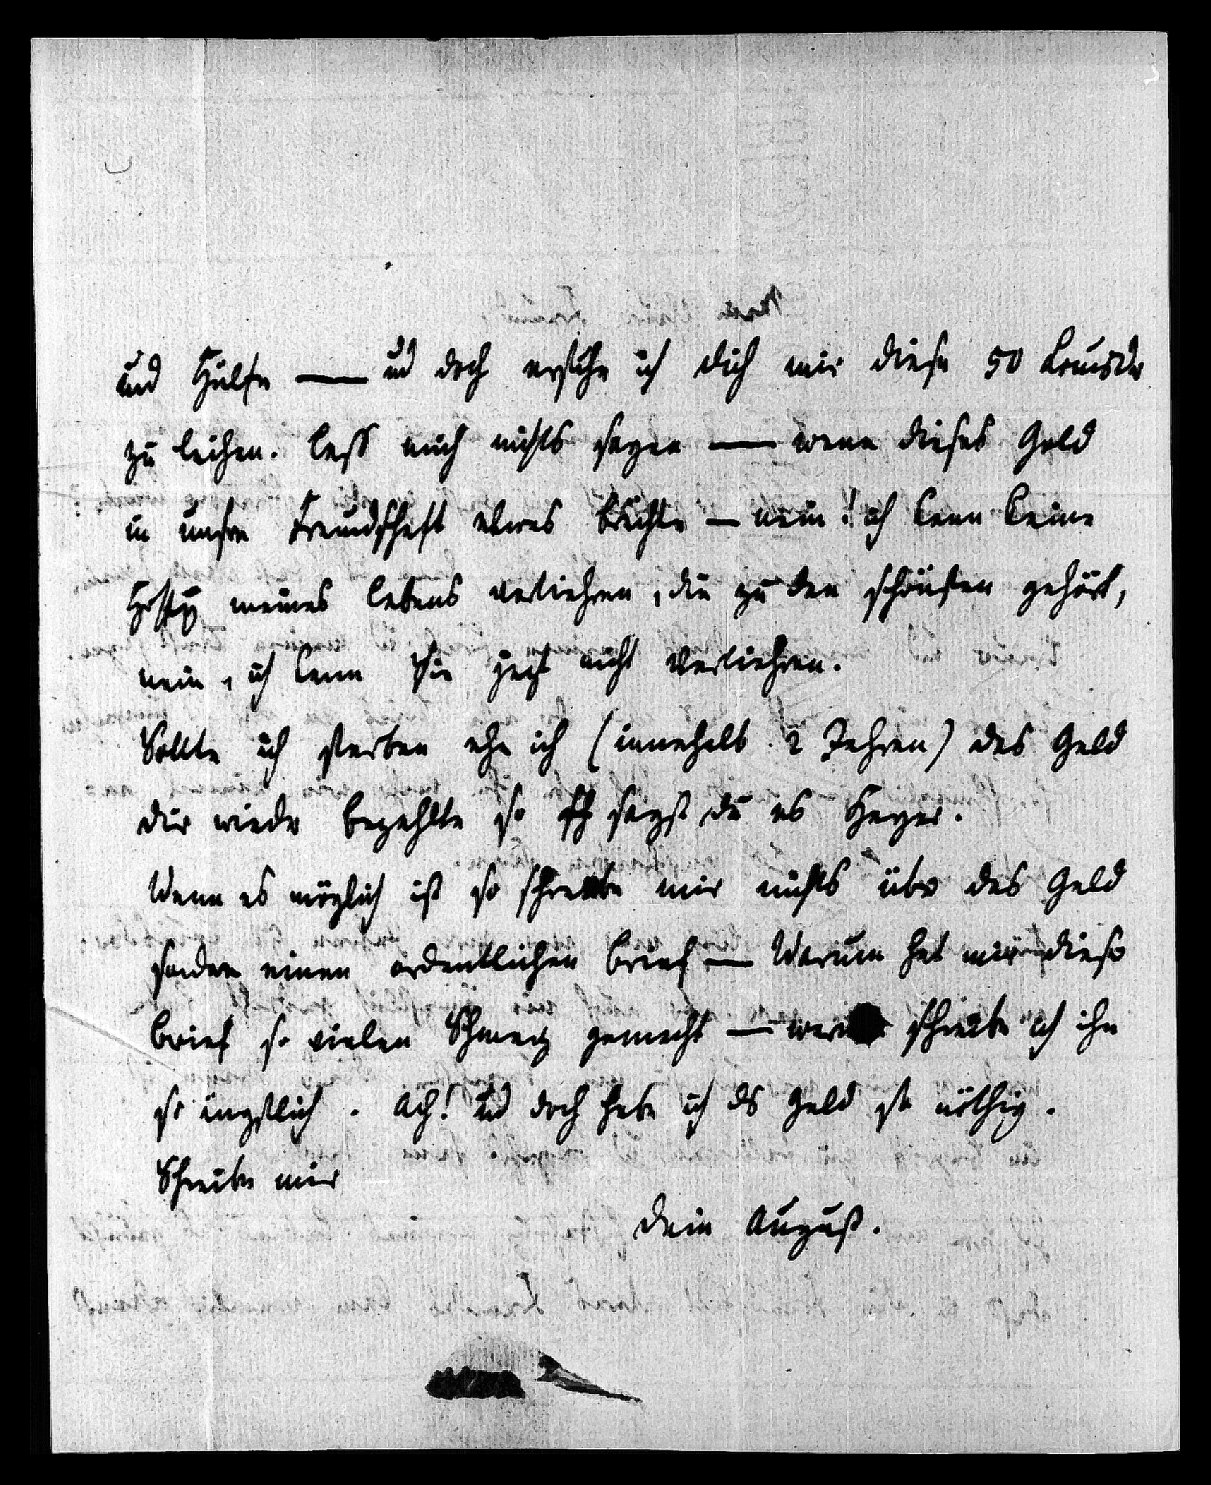 und Hülfe — und doch ersuche ich dich mir diese 50 Louisdr
zu leihen. lass mich nichts sagen — wenn dieses Geld
in unsre Freundschaft etwas brächte — nein! ich kann keine
Hoffg meines lebens verliehren, die zu den schönsten gehört,
nein, ich kann Sie jezt nicht verliehren.
Sollte ich sterben ehe ich (innehalb 2 Jahren) das Geld
dir wiedr bezahlte so sagst du es Heyer.
Wenn es möglich ist so schreibe mir nichts übr das Geld
sondern einen ordentlichen brief — Warum hat mir diesr
brief so vielen Schmerz gemacht — warum schreibe ich ihn
so ängstlich. Ach! und doch habe ich ds Geld so nöthig.
Schreibe mir
dein August.